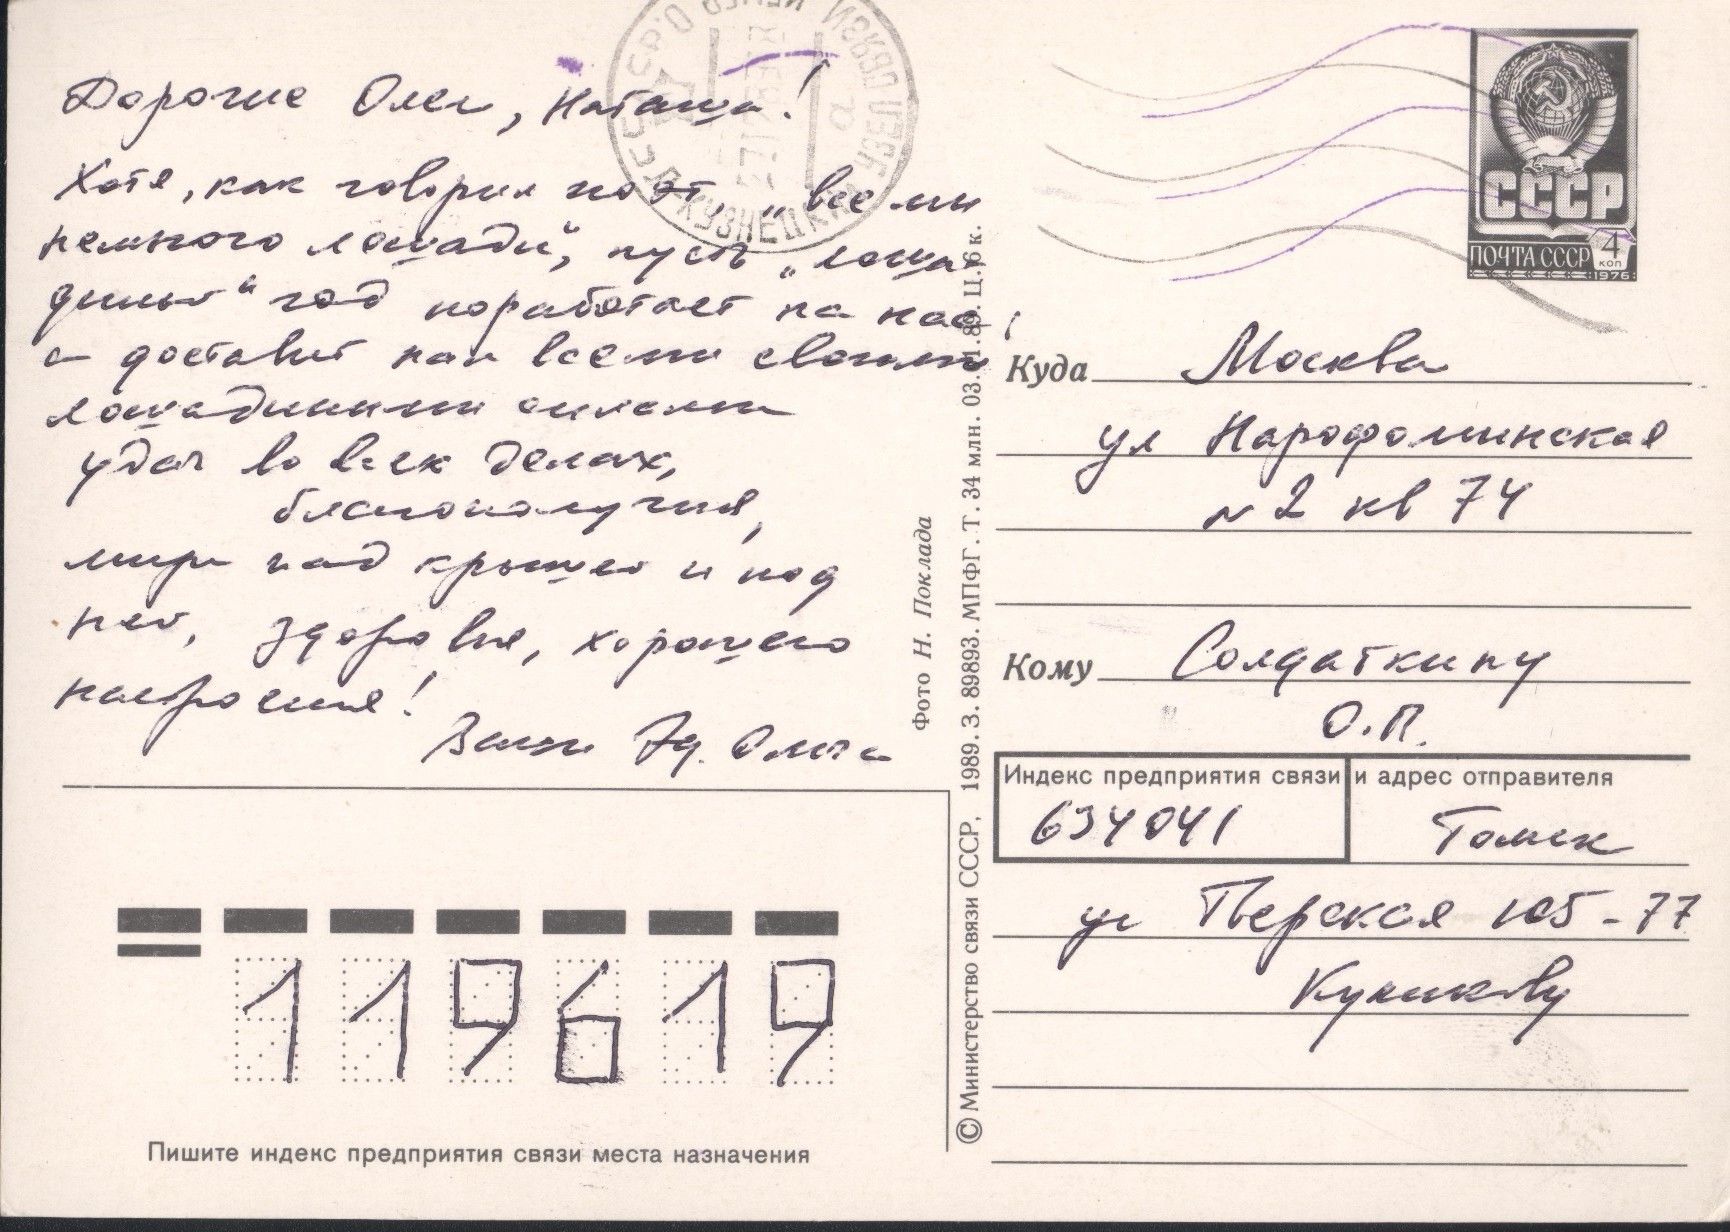 Дорогие Олег, Наташа!
Хотя, как говорил поэт, „все мы
немного лошади", пусть „лоша-
диный" год поработает на нас
и доставит нам всеми своими
лошадиными силами
удач во всех делах,
благополучия,
мира над крышей и под
ней, здоровья, хорошего
настроения!
Ваши Эд. Ольга
КУЗНЕЦК
СССР
ПОЧТА СССР 4 КОП 1976
Куда Москва
ул Нарофоминская
N 2 кв 74
Кому Солдаткину
О.П.
Индекс предприятия связи и адрес отправителя
634041 Томск
ул Тверская 105-77
Куликову
119619
Пишите индекс предприятия связи места назначения
Фото Н. Поклада
© Министерство связи СССР, 1989. З. 89893. МПФГ. Т. 34 млн. 03. 89. Ц. 6 к.